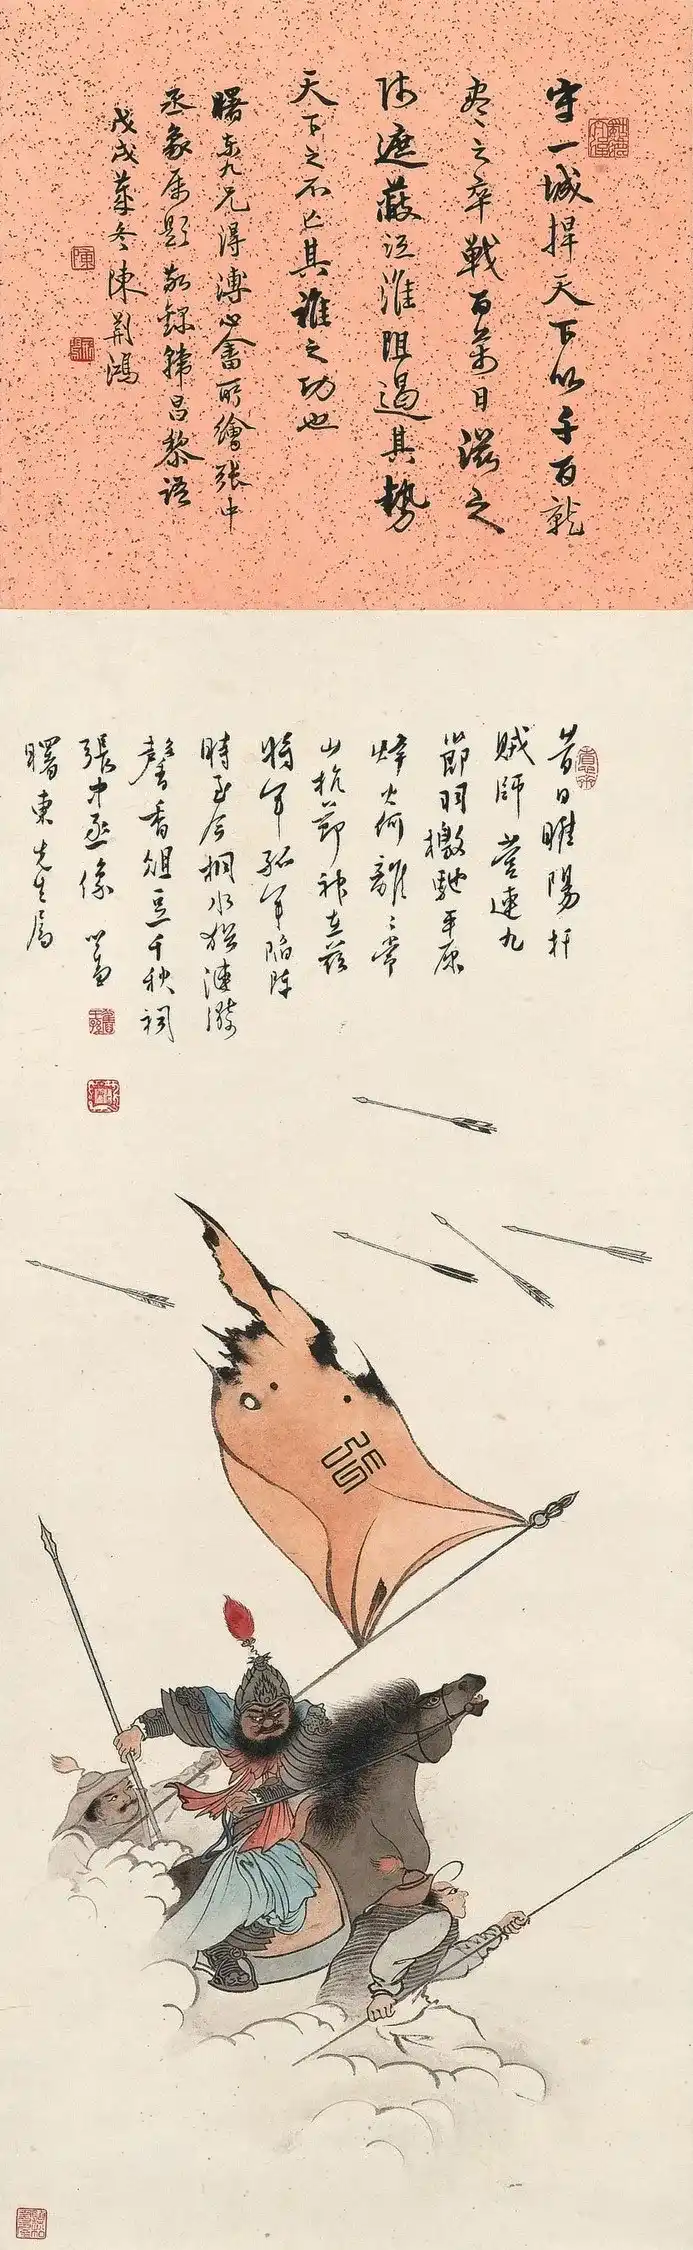 守一城捍天下以千百就
盡之卒戰百萬日滋之
師遮蔽江淮阻遏其勢
天下之不亡其誰之功也
曙東九兄得溥心畬所繪張中
丞象屬題敬錄韓昌黎語
戊戌歲冬陳荊鴻
昔日睢陽扞
賊師營連九
節羽檄馳平原
烽火何離〻常
山抗節神在茲
將軍孤軍陷陣
時至今桐水猶漣漪
馨香俎豆千秋祠
張中丞像 心畬
曙東先生屬
張